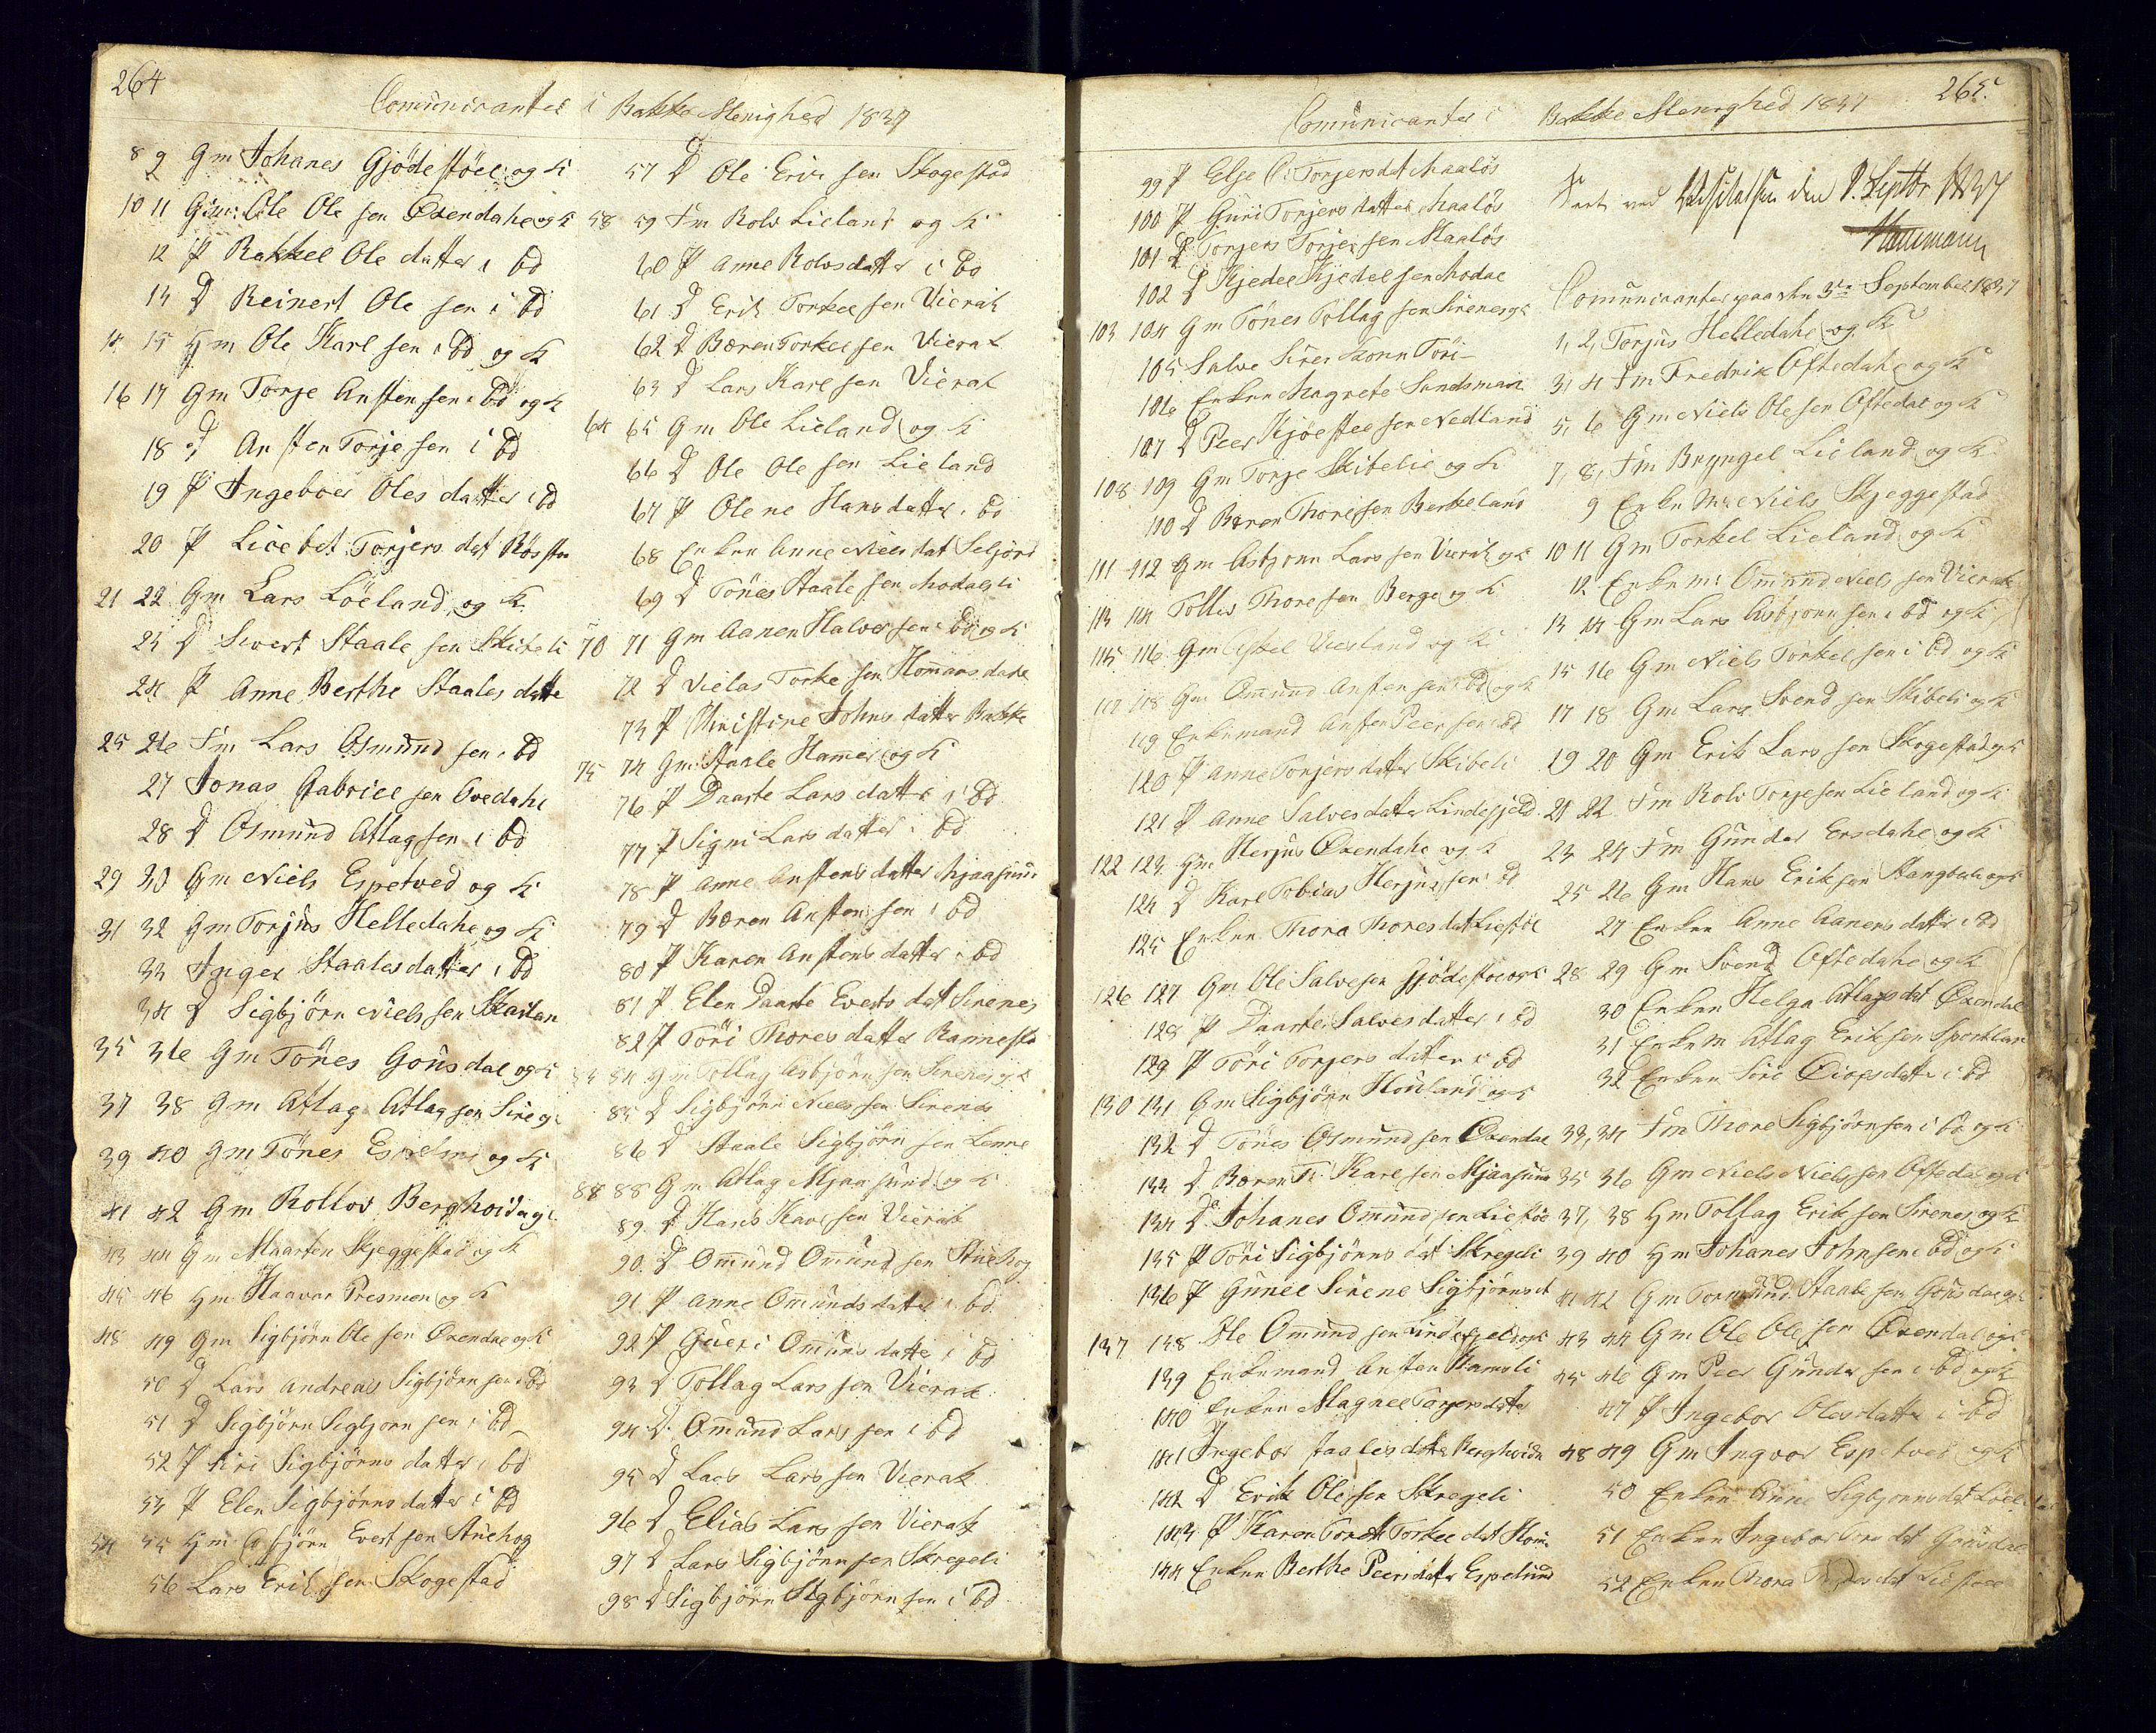 264
Comunicanter i Bakke Menighed 1837
8 9 Gm Johanes Gjödestöel og K
10 11 Gm: Ole Ole sen Øxendahl og K
12 P Rakkel Ole datter i bd
13 D Reinert Ole sen i bd
14 15 Hm Ole Karl sen i bd og K
16 17 Gm Torje Ansten sen i bd og K
18 D Ansten Torje sen i bd
19 P Ingeboer Oles datter i bd
20 P Licebet Torjers dat
21 22 Gm Lars Löeland og K
23 D Sivert Staale sen Skibeli
24 P Anne Berthe Staales datte
25 26 Fm Lars Osmund sen i bd
27 Jonas Gabriel sen
28 D Osmund Atlag sen i bd
29 30 Gm Niels Espetved og K
31 32 Gm Torjus Helledahl og K
33 Inger Staalesdatter i bd
34 D Sigbjörn Niels sen
35 36 Gm Tönes Gousdal og K
37 38 Gm Atlag Atlag sen Sire og
39 40 Gm Tönes og K
41 42 Gm Rollov Berghvidn og
43 44 Gm Maarten Skjeggestad og K
45 46 Hm Haavar Presmen og K
48 49 Gm Sigbjörn Ole sen Øxendal og K
50 D Lars Andreas Sigbjörn sen i bd
51 D Sigbjörn Sigbjorn sen i bd
52 P Siri Sigbjörns datter i bd
53 P Elen Sigbjörns datter i bd
54 55 Hm Asbjörn Evert sen
56 Lars Erik sen Skogestad
57 D Ole Erik sen Skogestad
58 59 Fm Rolv Lieland og K
60 P Anne Rolvs datter i bd
61 D Erik Torkel sen Vierak
62 D Bæren Torkel sen Vierak
63 D Lars Karl sen Vierak
64 65 Gm Ole Lieland og K
66 D Ole Ole sen Lieland
67 P Olene Hans datter i bd
68 Enken Anne Niels dat
69 D Tönes Staale sen Modalsli
70 71 Gm Aanen Halver sen i bd og K
72 D Vielas Torke sen Homansdahl
73 P Christine Johns datter Bakke
75 74 Gm: Staale Hamer og K
76 P Daarte Lars datter i bd
77 P Signi Lars datter i bd
78 P Anne Anstens datter Mjaasund
79 D Bæren Ansten sen i bd
80 P Karen Anstens datter i bd
81 P Elen Daarte Everts dat Sirenes
82 P Töri Thores datter
83 84 Hm Tollag Asbjörn sen Sirenes og K
85 D Sigbjörn Niels sen Sirenes
86 D Staale Sigbjörn sen
88 88 Gm Atlag Mjaasund og K
89 D Hans Karl sen Vierak
90 D Omund Omund sen
91 P Anne Omunds datter i bd
92 P Guri Omuns datter i bd
93 D Tollag Lars sen Vierak
94 D Omund Lars sen i bd
95 D Lars Lars sen Vierak
96 D Elias Lars sen Vierak
97 D Lars Sigbjörn sen Skregeli
98 D Sigbjörn Sigbjörn sen i bd
265.
Comunicanter i Bakke Menighed 1837
99 P Else Torjers dat Maalös
100 P Guri Torjers datter Maalös
101 D Torjers Torjer sen Maalös
102 D Kjedel Kjedel sen Modal
103 104 Gm Tönes Tollag sen Sirenes og K
105 Salve Sires Konn Töri
106 Enken Magrete Sandsmark
107 D Peer Kjöestel sen Nedland
108 109 Gm Torje Skibelie og K
110 D Bæren Thore sen Berkeland
111 112 Gm Asbjorn Lars sen Vierak og K
113 114 Tolles Thore sen Berge og K
115 116 Gm Eskel Vierland og K
117 118 Gm Omund Ansten sen i bd og K
119 Enkemand Ansten Peer sen i bd
120 P Anne Torjers datter Skibeli
121 P Anne Salves datter Lindefjeld
122 123 Gm Herjus Øxendahl og K
124 D Karl Tobias Herjus sen i bd
125 Enken Thora Thores dat Liestöl
126 127 Gm Ole Salvesen Gjödestöl og K
128 P Daarte Salves datter i bd
129 P Töri Torjers datter i bd
130 131 Gm Sigbjörn Houland og K
132 D Tönes Osmund sen Øxendal
133 D Bæren T: Karl sen Mjaasund
134 D Johanes Omund sen Liestöl
135 P Töri Sigbjörns dat Skregeli
136 P Gunel Sirene Sigbjörns d
137 138 Ole Omund sen Lindefjeld og K
139 Enkemand Ansten Hamsli
140 Enken Magnel Torjers datter
141 Ingebor Staales datter Berghvidn
142 D Erik Ole sen Skregeli
143 P Karen Torkel dat Hom
144 Enken Berthe Peers datter Espelund
Seet ved Visitatsen den 2. Septbr 1837
Comunicanter paa den 3de September 1837
1, 2, Torjus Helledahl og K
3, 4 Fm Fredrik Oftedahl og K
5, 6 Gm Niels Ole sen Oftedal og K
7, 8, Fm Bryngel Lieland og K
9 Enkem: Niels Skjeggestad
10 11 Gm Torkel Lieland og K
12 Enkem: Omund Niels sen Vierak
13 14 Gm Lars Asbjorn sen i bd og K
15 16 Gm Niels Torkel sen i bd og K
17 18 Gm Lars Svend sen Skibeli og K
19 20 Gm Erik Lars sen Skogestad og K
21 22 Fm Rolv Torje sen Lieland og K
23 24 Fm Gunder Ersdahl og K
25 26 Gm Hans Erik sen Stangborli og K
27 Enken Anne Aanens datter i bd
28 29 Gm Svend Oftedahl og K
30 Enken Helga Atlags dat Øxendal
31 Enkem Atlag Erik sen
32 Enken Siri datter i bd
33, 34 Fm Thore Sigbjörn sen i bd og K
35 36 Gm Niels Niels sen Oftedal og K
37, 38 Hm Tollag Erik sen Sirenes og K
39 40 Hm Johanes John sen i bd og K
41 42 Gm Tormund Staale sen Gousdal og K
43 44 Gm Ole Ole sen Øxendal og K
45 46 Gm Peer Gunder sen i bd og K
47 P Ingebor Oles datter i bd
48 49 Gm Ingvor Espetved og K
50 Enken Anne Sigbjorns dat
51 Enken Ingebor Tores dat Gousdal
52 Enken Thora dat Liestöel